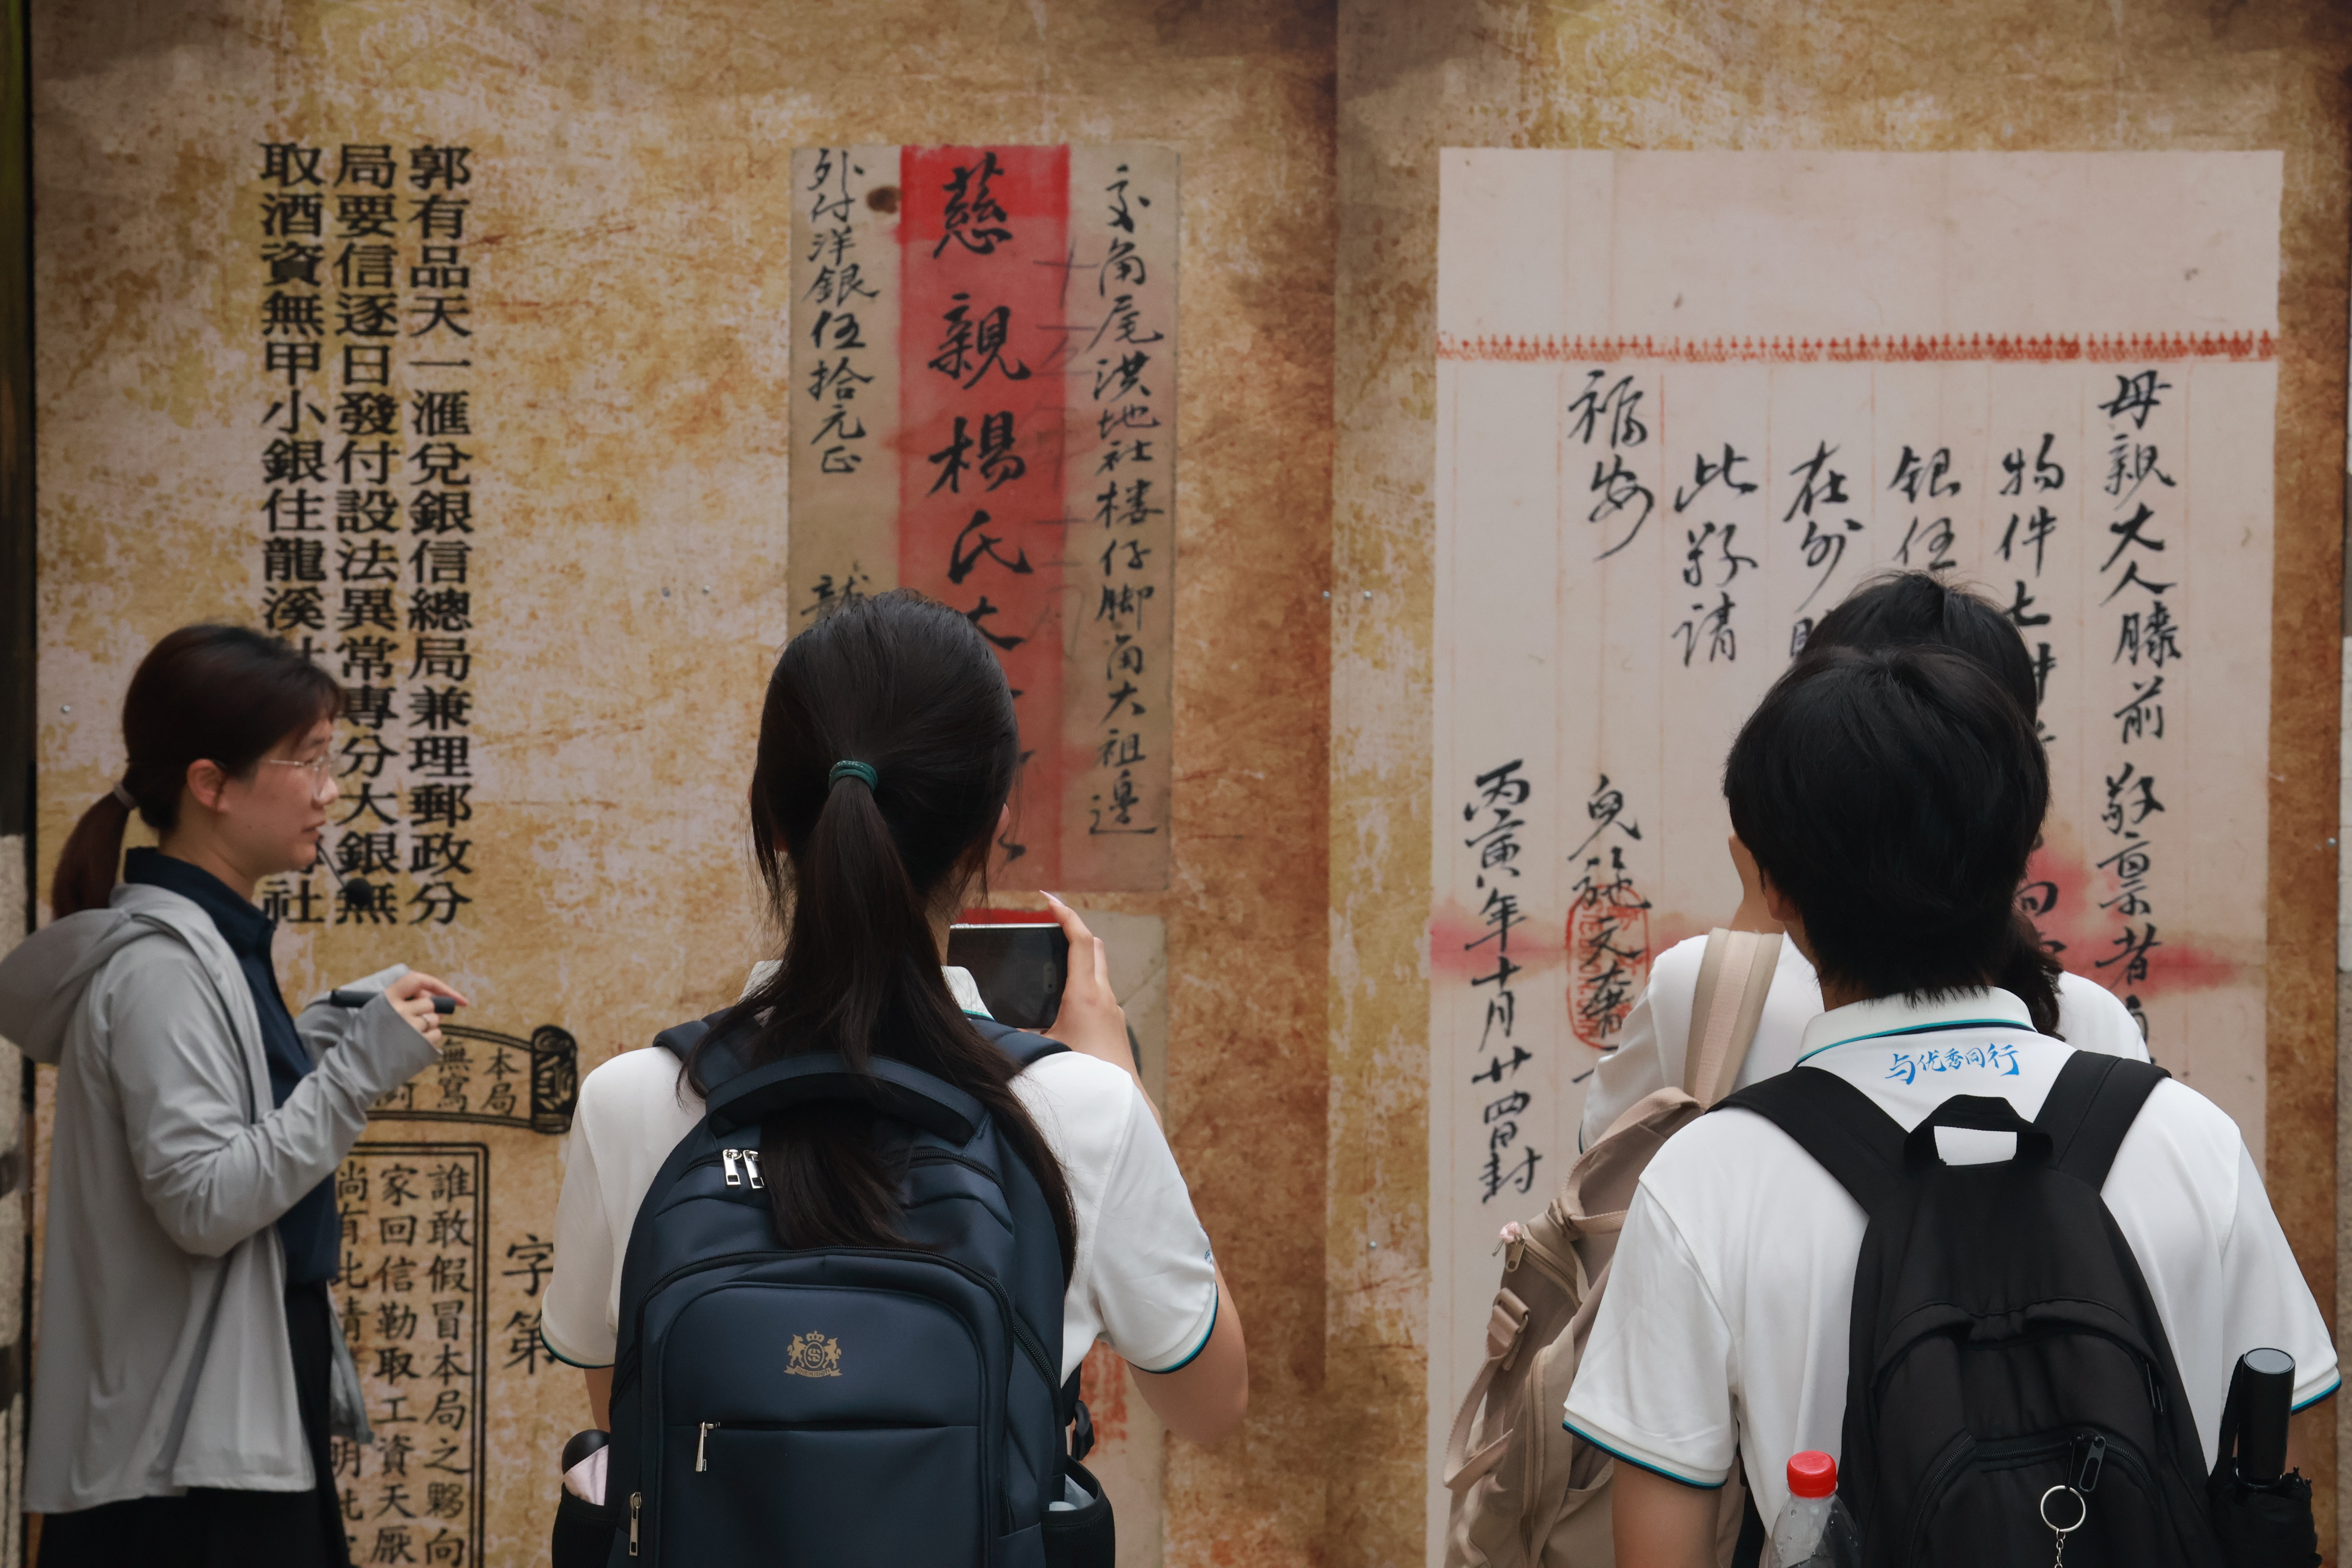 郭有品天一滙兌銀信總局兼理郵政分
局要信逐日發付設法異常專分大銀無
取酒資無甲小銀住龍溪社
本局
無寫
誰敢假冒本局之夥向
家回信勤取工資天厰
尚有此情
明此
字第
交角尾洪地社楼仔脚角大祖邊
慈親楊氏大
外付洋銀伍拾元正
母親大人膝前敬禀者
物件七
銀伍
在外
此敬請
福安
兒施文
丙寅年十月廿四日封
与优秀同行